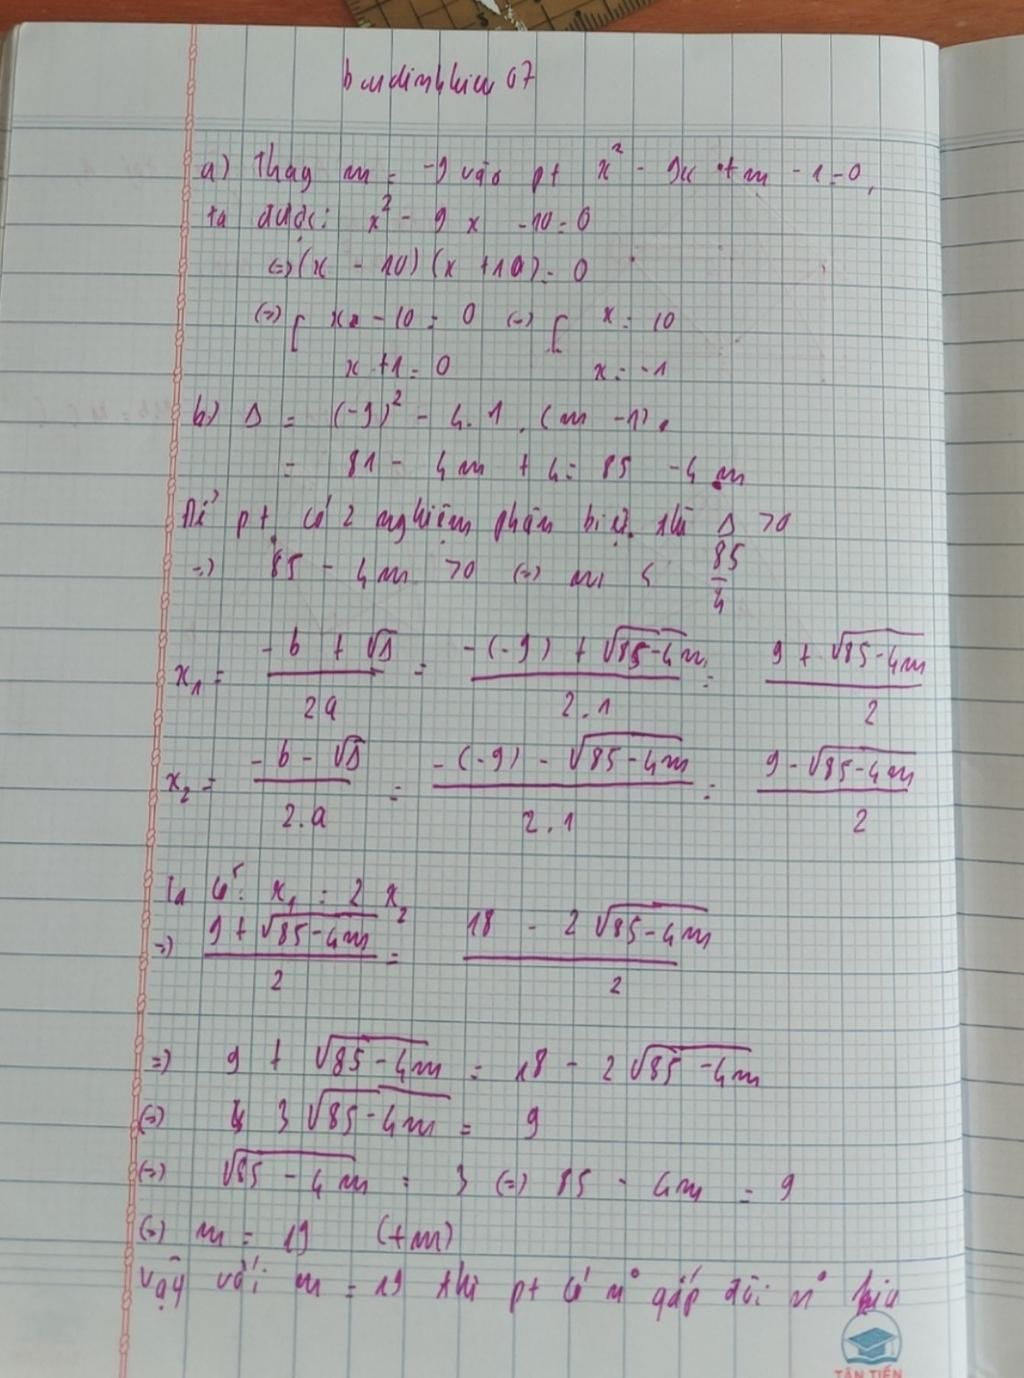 buidinhhieu 07
a) Thay m = -9 vào pt x² - 9x + m - 1 = 0,
ta được: x² - 9x - 10 = 0
<=> (x - 10) (x + 10) = 0
<=> [ x - 10 = 0 <=> [ x = 10
x + 1 = 0 x = -1
b) Δ = (-9)² - 4.1.(m - 1).
= 81 - 4m + 4 = 85 - 4m
Để pt có 2 nghiệm phân biệt thì Δ > 0
=> 85 - 4m > 0 <=> m < 85/4
x₁ = (-b + √Δ)/2a = (-(-9) + √(85-4m))/2.1 = (9 + √(85-4m))/2
x₂ = (-b - √Δ)/2.a = (-(-9) - √(85-4m))/2.1 = (9 - √(85-4m))/2
Ta có: x₁ = 2 x₂
=> (9 + √(85-4m))/2 = (18 - 2√(85-4m))/2
=> 9 + √(85-4m) = 18 - 2√(85-4m)
<=> 3√(85-4m) = 9
<=> √(85-4m) = 3 <=> 85 - 4m = 9
<=> m = 19 (tm)
vậy với m = 19 thì pt có n° gấp đôi n° kia
TÂN TIẾN